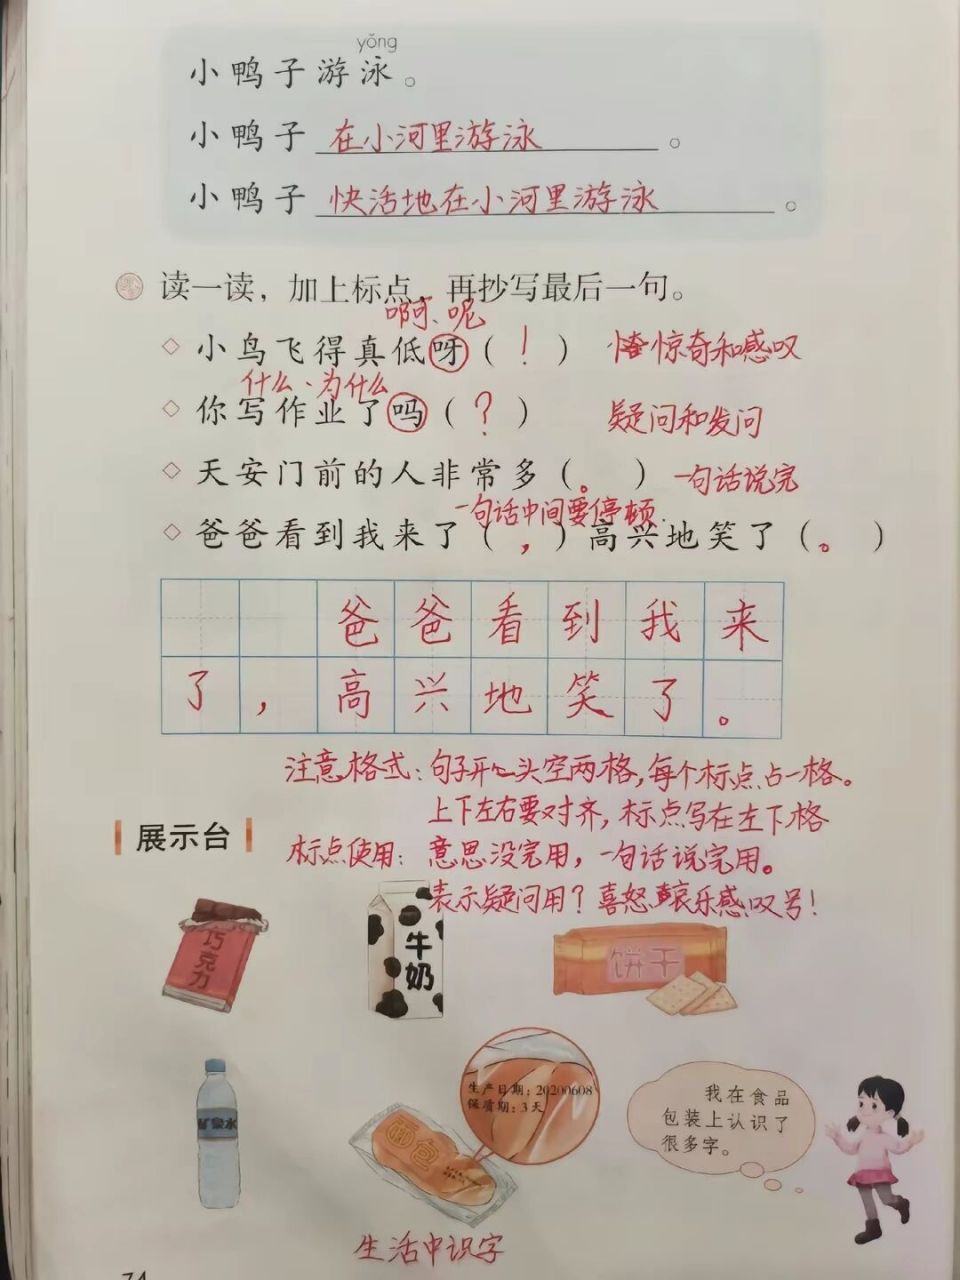 yǒng
小鸭子游泳。
小鸭子在小河里游泳。
小鸭子快活地在小河里游泳。
读一读，加上标点，再抄写最后一句。
啊、呢
小鸟飞得真低呀（！） 惊奇和感叹
什么、为什么
你写作业了吗（？） 疑问和发问
天安门前的人非常多（。） 一句话说完
一句话中间要停顿.
爸爸看到我来了（，）高兴地笑了（。）
爸爸看到我来
了，高兴地笑了。
注意格式：句子开头空两格，每个标点占一格。
上下左右要对齐，标点写在左下格
展示台
标点使用：意思没完用，一句话说完用。
表示疑问用？喜怒哀乐感叹号！
巧克力
牛奶
饼干
矿泉水
面包
生产日期：20200608
保质期：3天
我在食品
包装上认识了
很多字。
生活中识字
74